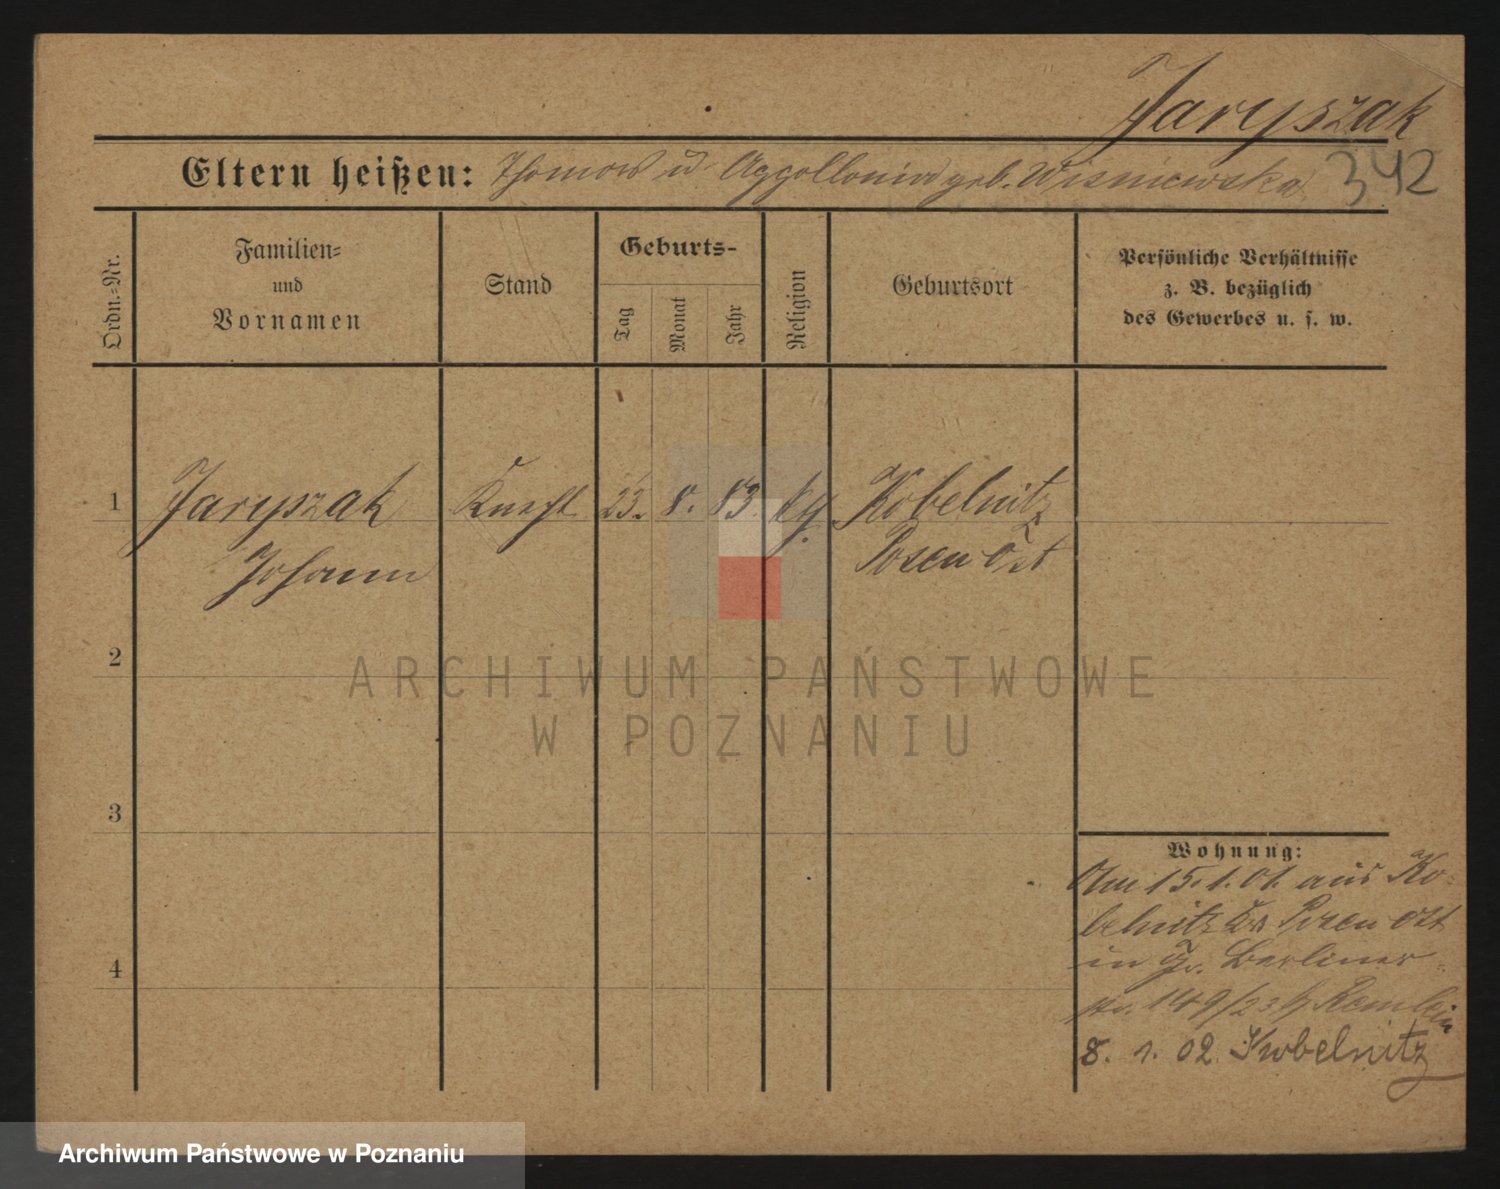 Jaryszak
Eltern heißen: Thomas u Appollonia geb. Wisniewska
342
Ordn.=Nr.
Familien=
und
Vornamen
Stand
Geburts-
Tag
Monat
Jahr
Religion
Geburtsort
Persönliche Verhältnisse
z. B. bezüglich
des Gewerbes u. s. w.
1
Jaryszak
Johann
Knecht
23.
8.
83
kth.
Kobelnitz
Posen Ost
2
ARCHIWUM PAŃSTWOWE
W POZNANIU
3
4
Wohnung:
Am 15.1.01. aus Ko-
belnitz Kr Posen Ost
in Gr. Berliner-
str. 149/23 b/
8. 1. 02. Kobelnitz
Archiwum Państwowe w Poznaniu